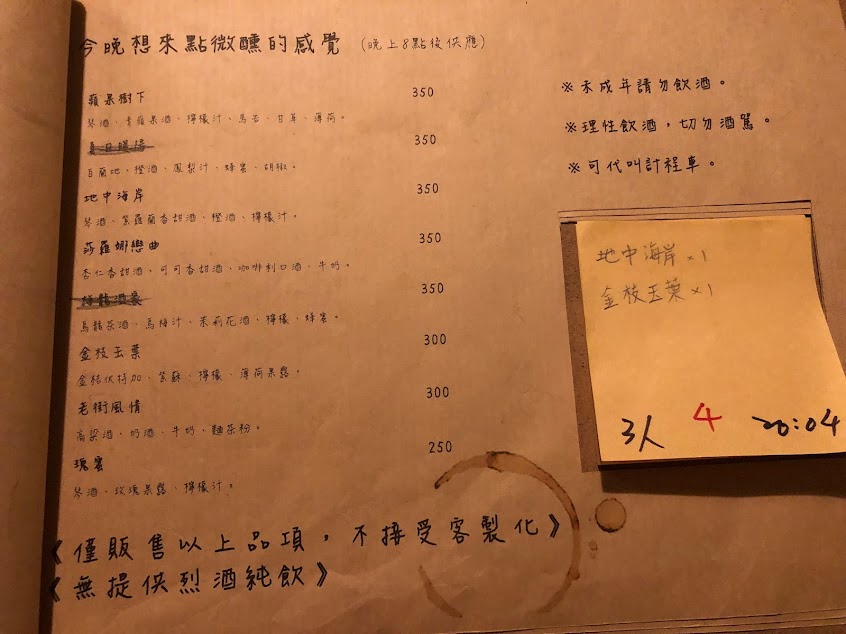 今晚想來點微醺的感覺 (晚上8點後供應)
蘋果樹下 350
琴酒、青蘋果酒、檸檬汁、馬告、甘草、薄荷。
夏日 350
白蘭地、橙酒、鳳梨汁、蜂蜜、胡椒。
地中海岸 350
琴酒、紫羅蘭香甜酒、橙酒、檸檬汁。
莎蘿娜戀曲 350
杏仁香甜酒、可可香甜酒、咖啡利口酒、牛奶。
350
烏龍茶酒、烏梅汁、茉莉花酒、檸檬、蜂蜜。
金枝玉葉 300
金桔伏特加、紫蘇、檸檬、薄荷果露。
老街風情 300
高粱酒、奶酒、牛奶、麵茶粉。
瑰雲 250
琴酒、玫瑰果露、檸檬汁。
《僅販售以上品項，不接受客製化》
《無提供烈酒純飲》
※未成年請勿飲酒。
※理性飲酒，切勿酒駕。
※可代叫計程車。
地中海岸 x1
金枝玉葉 x1
3人 4 20:04